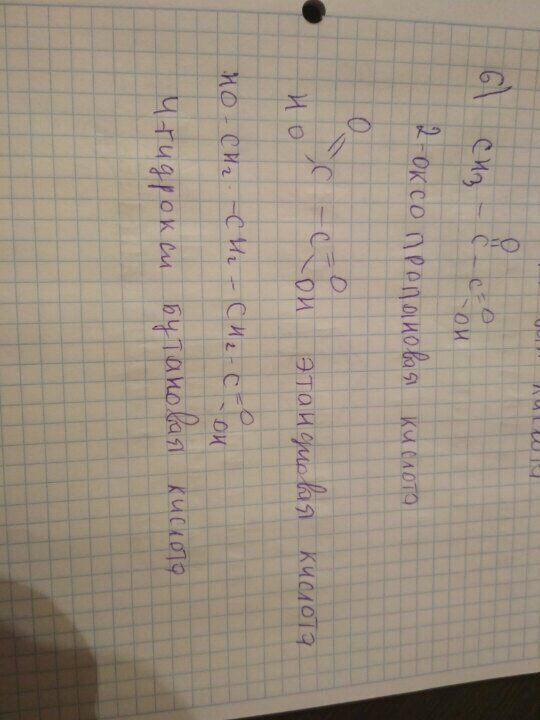 б) CH3 - C - C = O
O
OH
2-оксо пропановая кислота
O
HO C - C = O
OH этандиовая кислота
HO - CH2 - CH2 - CH2 - C = O
OH
4-гидрокси бутановая кислота